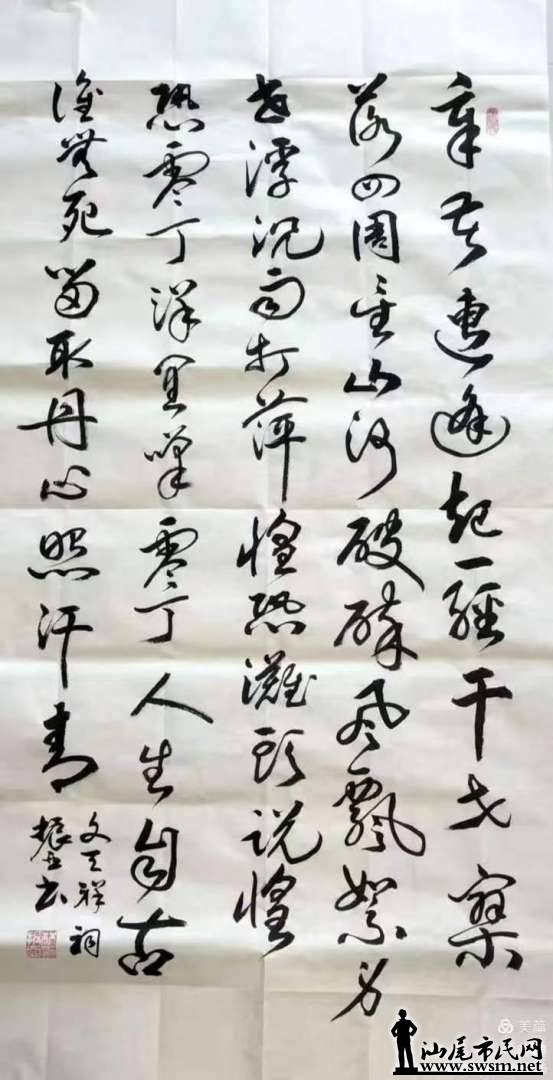 辛苦遭逢起一經干戈寥
落四周星山河破碎风飄絮身
世浮沉雨打萍惶恐灘頭説惶
恐零丁洋里嘆零丁人生自古
誰無死留取丹心照汗青
文天祥詞
書
美篇
汕尾市民网
www.swsm.net